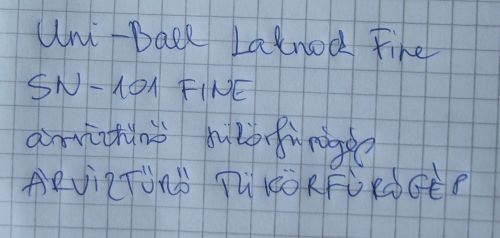 Uni-Ball Laknod Fine
SN-101 FINE
árvíztűrő tükörfúrógép
ÁRVÍZTŰRŐ TÜKÖRFÚRÓGÉP